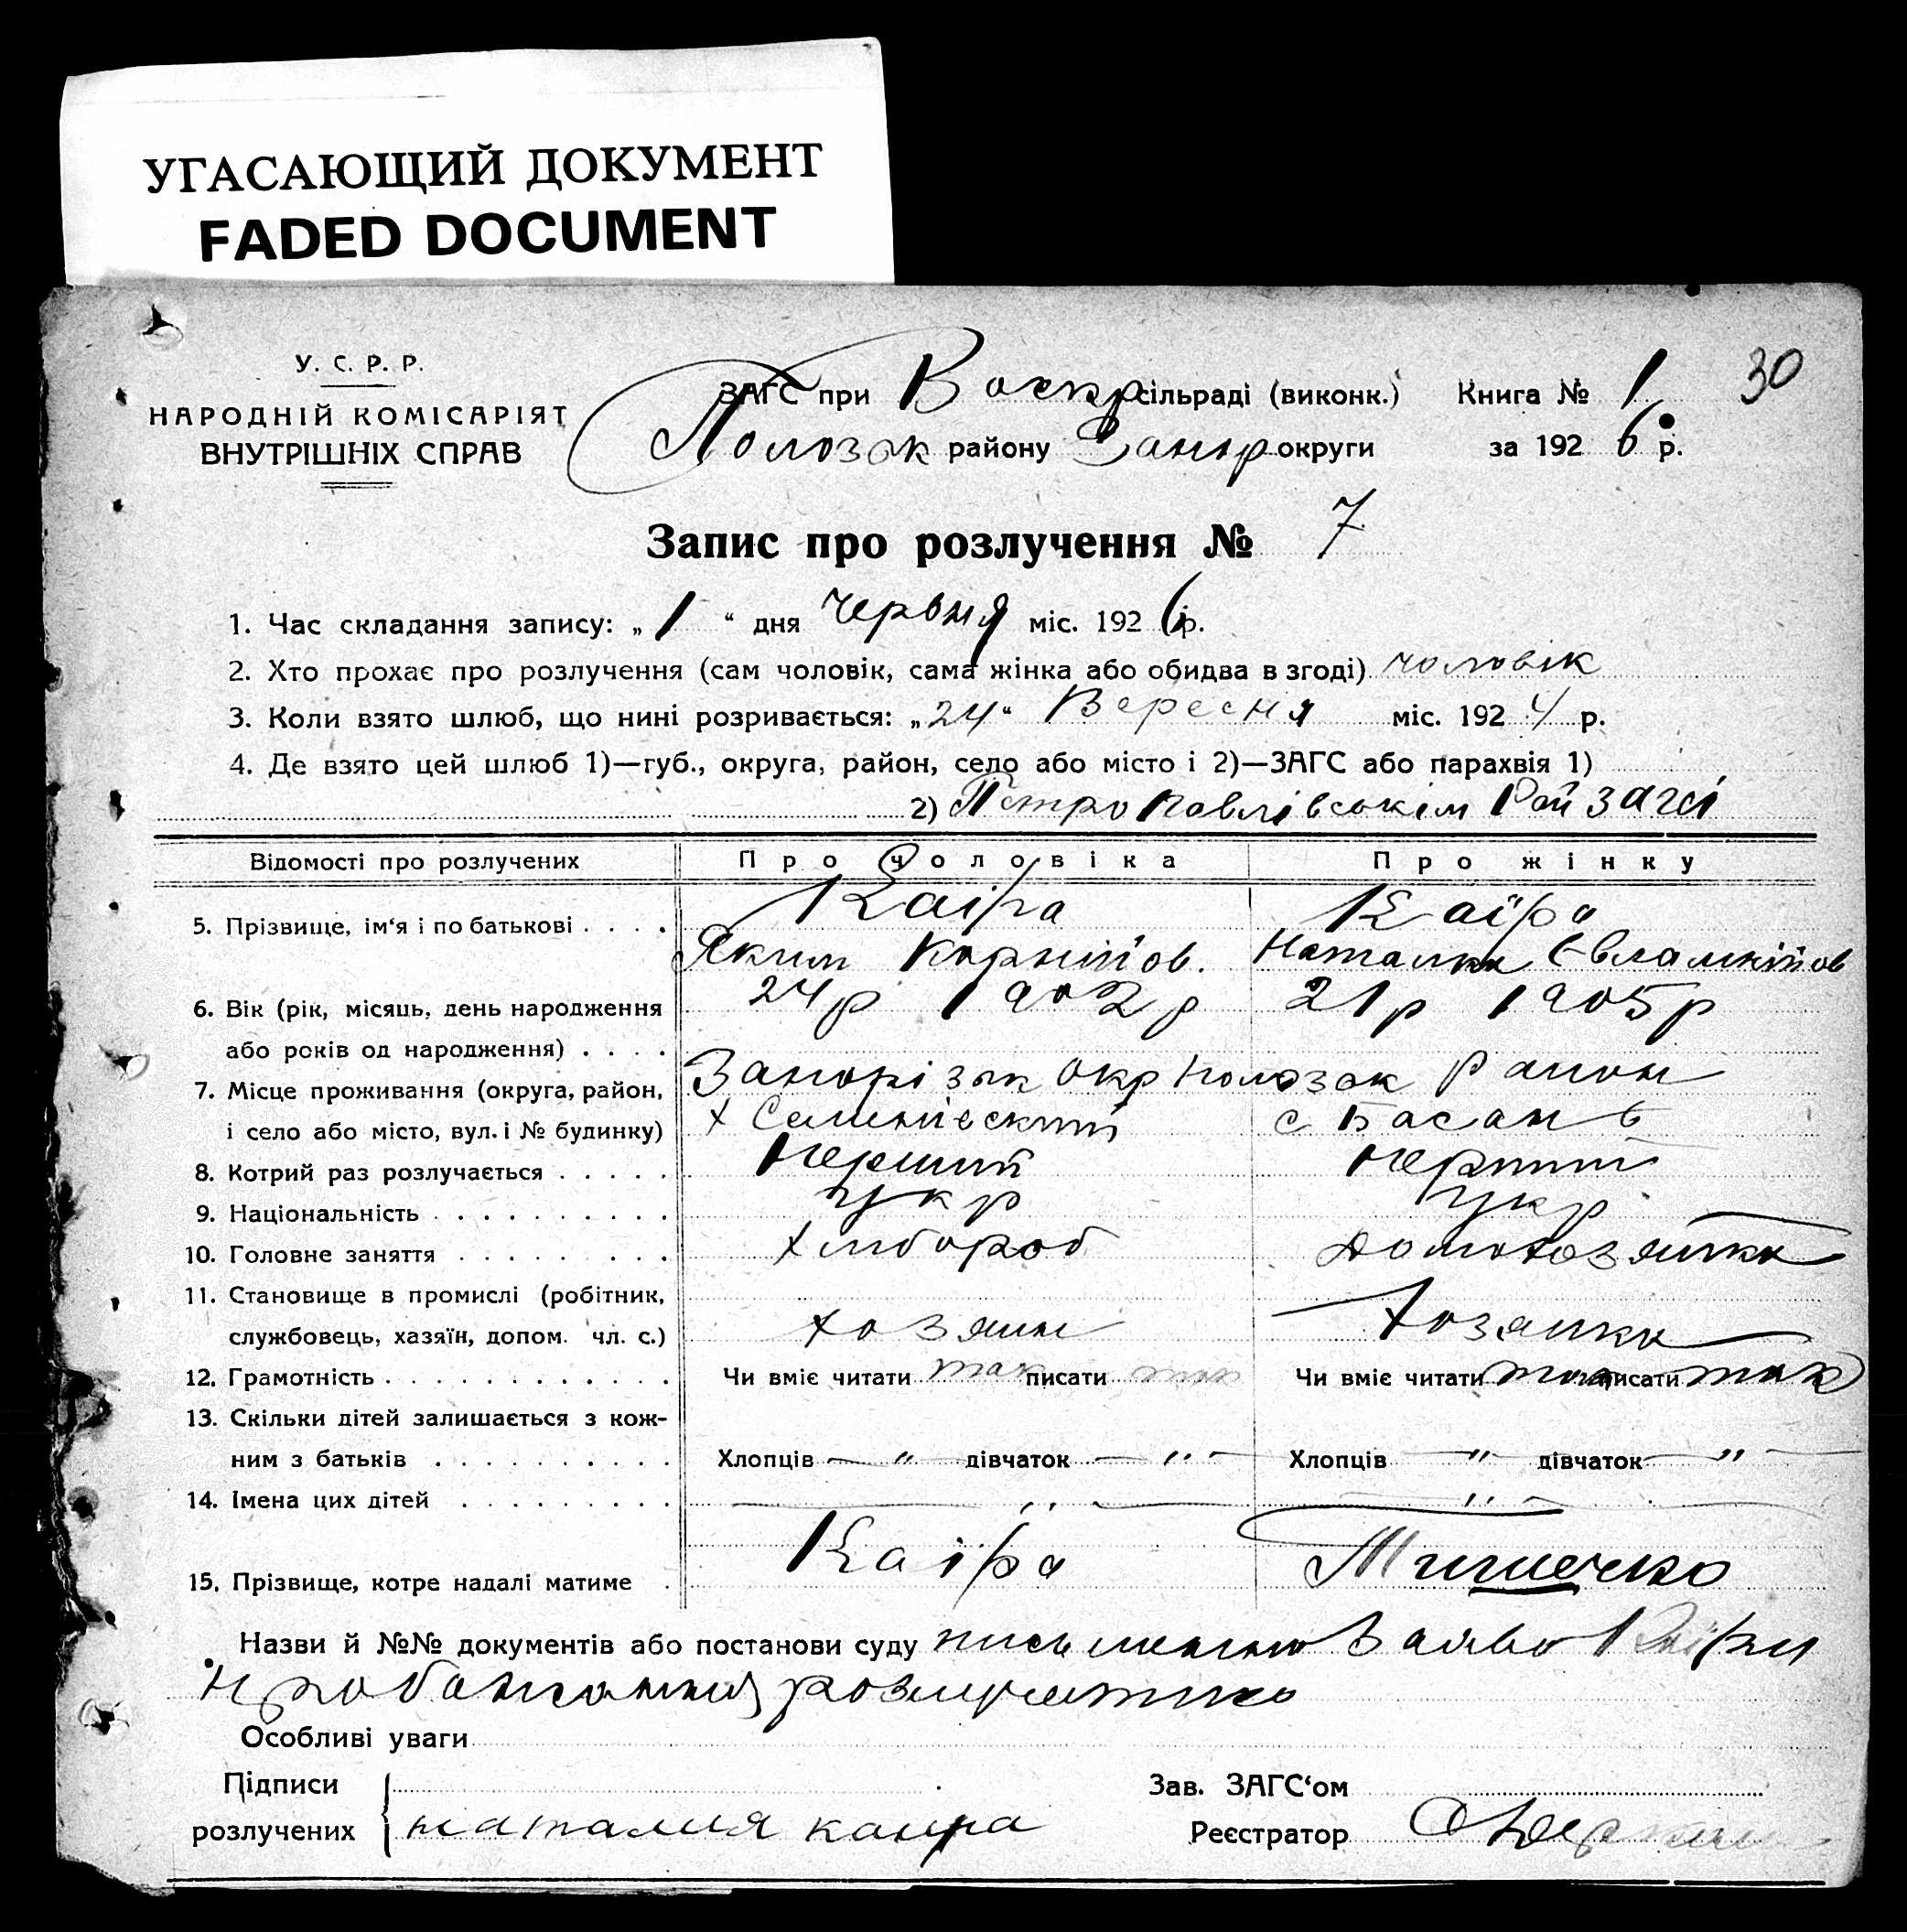 УГАСАЮЩИЙ ДОКУМЕНТ
FADED DOCUMENT
У. С. Р. Р.
НАРОДНІЙ КОМІСАРІЯТ
ВНУТРІШНІХ СПРАВ
ЗАГС при Воскр сільраді (виконк.) Книга № 1 30
Полозьк району Запор округи за 1926 р.
Запис про розлучення № 7
1. Час складання запису: „1“ дня Червня міс. 1926 р.
2. Хто прохає про розлучення (сам чоловік, сама жінка або обидва в згоді) чоловік
3. Коли взято шлюб, що нині розривається: „24“ Вересня міс. 1924 р.
4. Де взято цей шлюб 1)—губ., округа, район, село або місто і 2)—ЗАГС або парахвія 1)
2) Петропавлівськім Рай загсі
Відомості про розлучених Про чоловіка Про жінку
5. Прізвище, ім‘я і по батькові . . . . Каіра Каїра
Яким Корнійов. Наталка Євлампійов
6. Вік (рік, місяць, день народження 24р 1902р 21р 1905р
або років од народження) . . . .
7. Місце проживання (округа, район, Запорізьк Окр Полозьк район
і село або місто, вул. і № будинку) х с Басань
8. Котрий раз розлучається . . . . . Перший Перший
9. Національність . . . . . . . . . . Укр Укр
10. Головне заняття . . . . . . . . Хлібороб Домохозяйка
11. Становище в промислі (робітник,
службовець, хазяїн, допом. чл. с.) хозяин Хозяйка
12. Грамотність . . . . . . . . . . . . Чи вміє читати так писати так Чи вміє читати так писати так
13. Скільки дітей залишається з кож-
ним з батьків . . . . . . . . . . Хлопців — „ — дівчаток — „ — Хлопців — „ — дівчаток — „ —
14. Імена цих дітей . . . . . . . . . — „ — — „ —
15. Прізвище, котре надалі матиме . Каіра Тимечко
Назви й №№ документів або постанови суду письменна Заява Каїри
про бажання розлучитись
Особливі уваги
Підписи Зав. ЗАГС‘ом
розлучених наталия каира Реєстратор